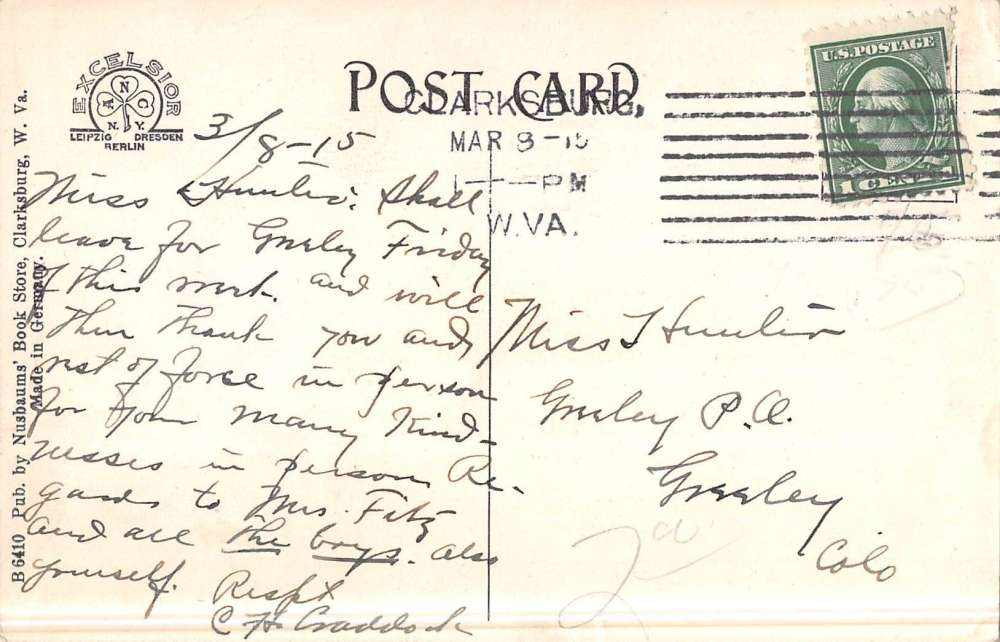 EXCELSIOR
A N C
N. Y.
LEIPZIG DRESDEN
BERLIN
POST CARD.
CLARKSBURG,
MAR 8 - 15
1 - PM
W. VA.
U.S. POSTAGE
1 CENT
B 6410 Pub. by Nusbaums' Book Store, Clarksburg, W. Va.
Made in Germany.
3/8-15
Miss Hunter: Shall
leave for Greeley Friday
of this week. and will
then thank you and
rest of force in person
for your many kind-
nesses in person. Re-
gards to Mrs. Fitz
and all the boys. also
yourself.
Respt
C H Craddock
Miss Hunter
Greeley P.O.
Greeley
Colo